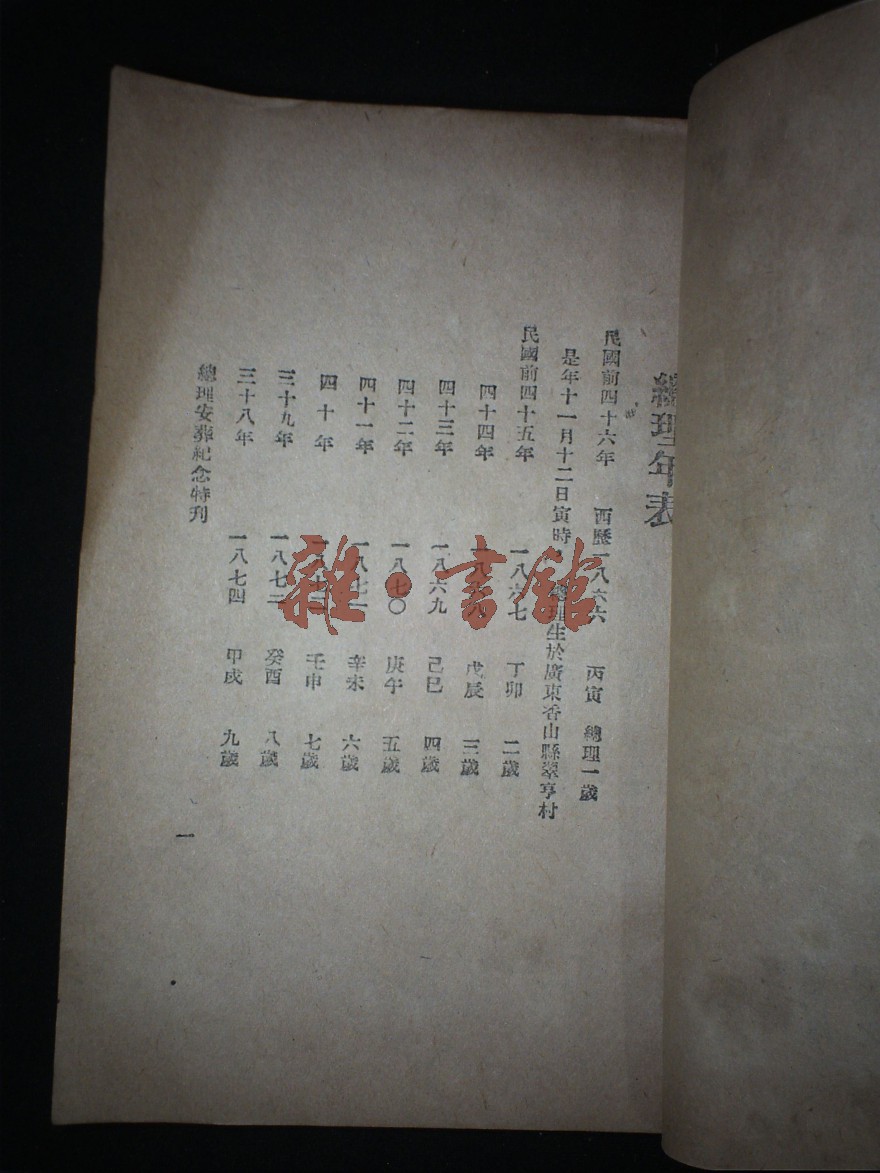 總理年表
民國前四十六年 西歷一八六六 丙寅 總理一歲
是年十一月十二日寅時 總理生於廣東香山縣翠亨村
民國前四十五年 一八六七 丁卯 二歲
四十四年 一八六八 戊辰 三歲
四十三年 一八六九 己巳 四歲
四十二年 一八七〇 庚午 五歲
四十一年 一八七一 辛未 六歲
四十年 一八七二 壬申 七歲
三十九年 一八七三 癸酉 八歲
三十八年 一八七四 甲戌 九歲
總理安葬紀念特刊
一
雜·書館